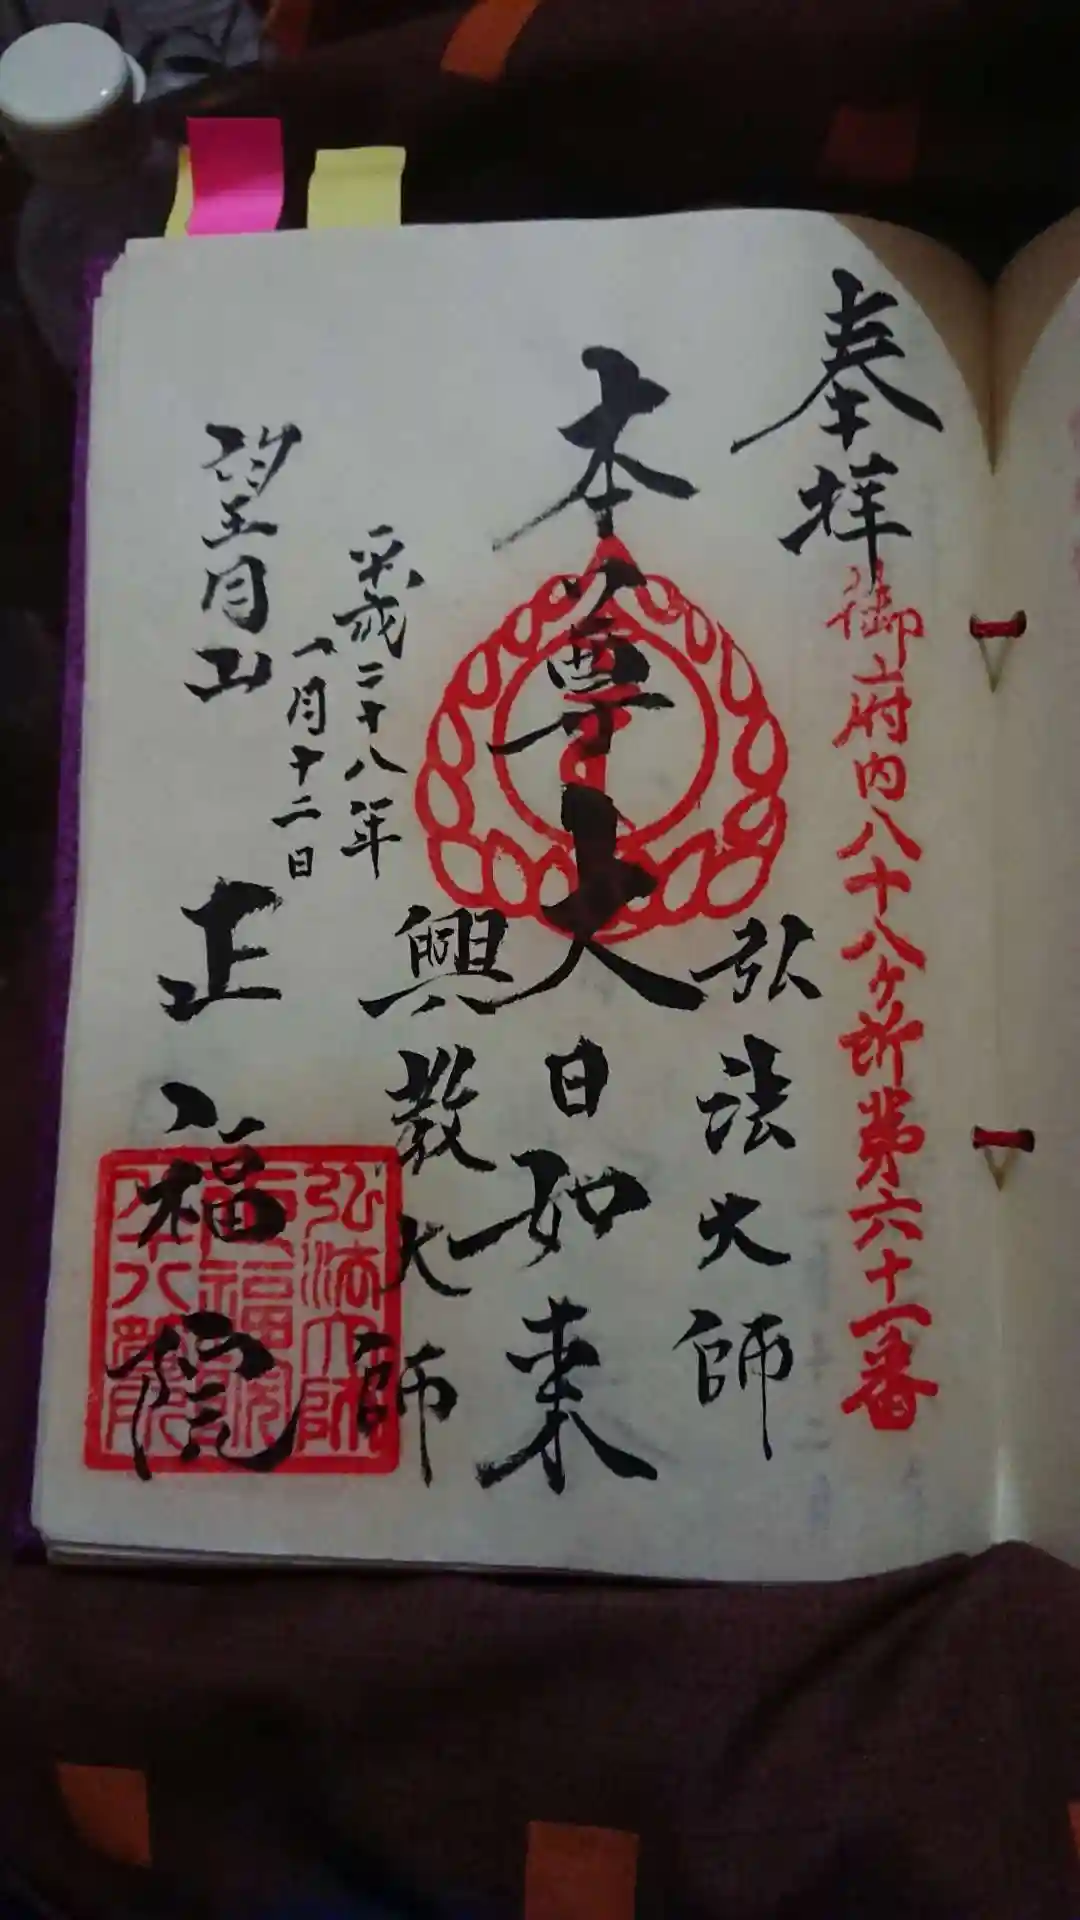 奉拝
御府内八十八ヶ所第六十一番
弘法大師
本尊大日如来
興教大師
平成二十八年
一月十二日
望月山
正福院
弘法大師